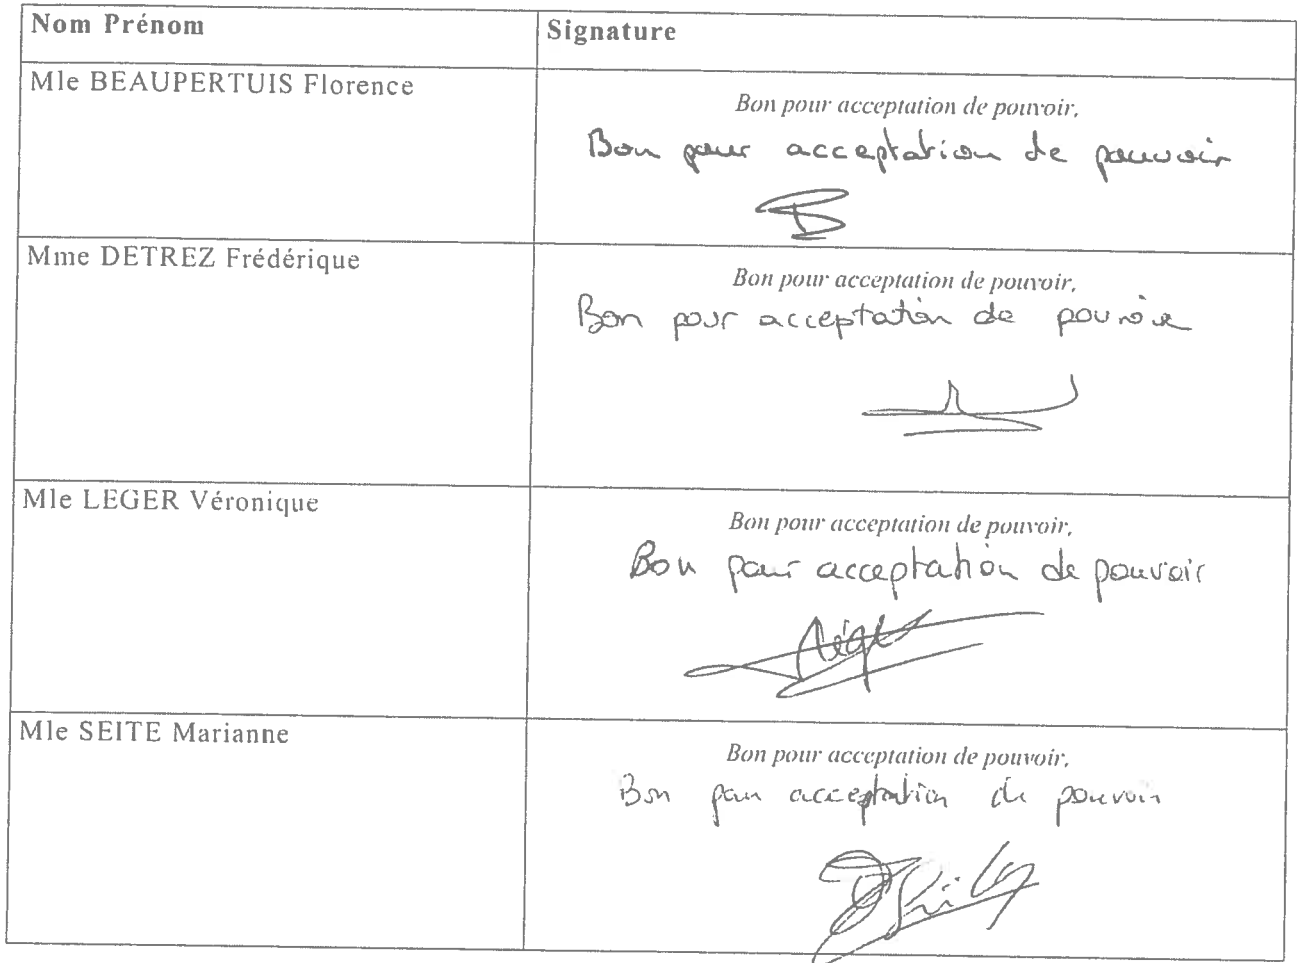 Nom Prénom
Signature
Mle BEAUPERTUIS Florence
Bon pour acceptation de pouvoir,
Bon pour acceptation de pouvoir
B
Mme DETREZ Frédérique
Bon pour acceptation de pouvoir,
Bon pour acceptation de pouvoir
Mle LEGER Véronique
Bon pour acceptation de pouvoir,
Bon pour acceptation de pouvoir
Mle SEITE Marianne
Bon pour acceptation de pouvoir,
Bon pour acceptation de pouvoir